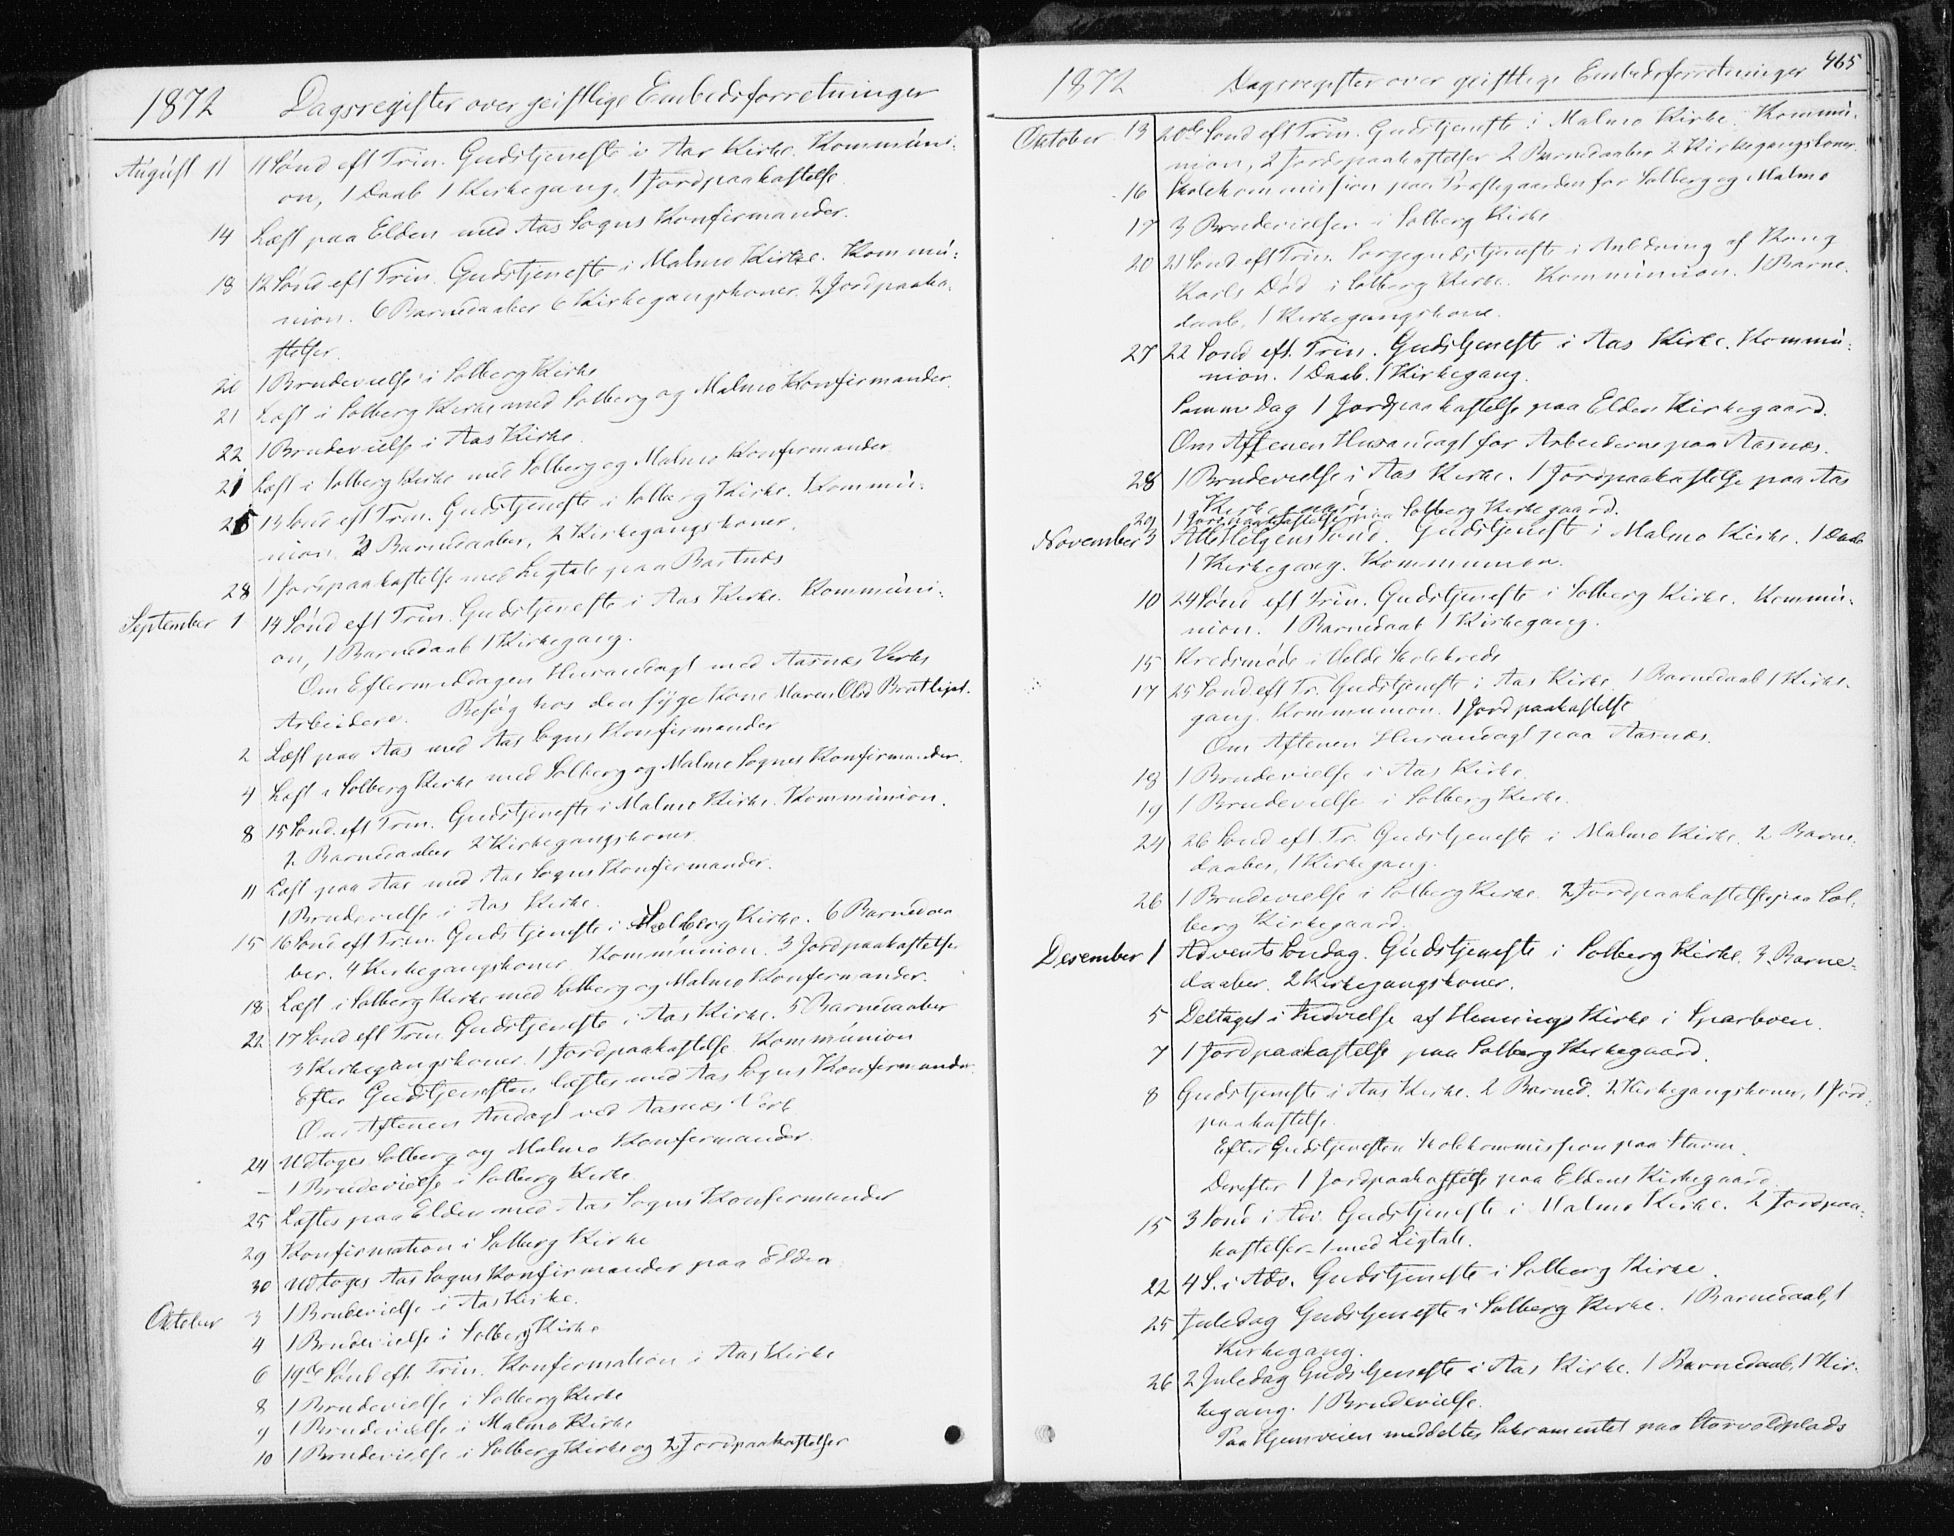 1872 Dagsregister over geistlige Embedsforretninger
August 11 11 Sønd eft Trin. Gudstjeneste i Aas Kirke. Kommuni-
on, 1 Daab 1 Kirkegang, 1 Jordpaakastelse
14 Læst paa Elden med Aas Sogns Konfirmander.
18 12 Sønd eft Trin. Gudstjeneste i Malmo Kirke. Kommu-
nion. 6 Barnedaaber 6 Kirkegangskoner. 2 Jordpaaka-
stelser.
20 1 Brudevielse i Solberg Kirke
21 Læst i Solberg Kirke med Solberg og Malmo Konfirmander.
22 1 Brudevielse i Aas Kirke.
21 Læst i Solberg Kirke med Solberg og Malmo Konfirmander.
25 13 Sønd eft Trin. Gudstjeneste i Solberg Kirke. Kommu-
nion. 2 Barnedaaber, 2 Kirkegangskoner.
28 1 Jordpaakastelse med Ligtale paa Bartnæs
September 1 14 Sønd eft Trin. Gudstjeneste i Aas Kirke. Kommuni-
on, 1 Barnedaab 1 Kirkegang.
Om Eftermiddagen Husandagt med Aasnæs Verks
Arbeidere. Besøg hos den syge Kone Maren Olsd
2 Læst paa Aas med Aas Sogns Konfirmander
4 Læst i Solberg Kirke med Solberg og Malmo Sognes Konfirmander.
8 15 Sønd. eft Trin. Gudstjeneste i Malmo Kirke. Kommunion.
2 Barnedaaber 2 Kirkegangskoner.
11 Læst paa Aas med Aas Sogns Konfirmander.
1 Brudevielse i Aas Kirke.
15 16 Sønd eft Trin. Gudstjeneste i Solberg Kirke. 6 Barnedaa
ber. 4 Kirkegangskoner Kommunion. 3 Jordpaakastelser
18 Læst i Solberg Kirke med Solberg og Malmo Konfirmander.
22 17 Sønd eft Trin. Gudstjeneste i Aas Kirke. 5 Barnedaaber
3 Kirkegangskoner. 1 Jordpaakastelse Kommunion
Efter Gudstjenesten læstes med Aas Sogns Konfirmander.
Om Aftenen Andagt ved Aasnæs Verk
24 Udtoges Solberg og Malmo Konfirmander.
- 1 Brudevielse i Solberg Kirke.
25 Læstes paa Elden med Aas Sogns Konfirmander
29 Konfirmation i Solberg Kirke
30 Udtoges Aas Sogns Konfirmander paa Elden.
Oktober 3 1 Brudevielse i Aas Kirke.
4 1 Brudevielse i Solberg Kirke
6 19de Sønd eft. Trin. Konfirmation i Aas Kirke
8 1 Brudevielse i Solberg Kirke
9 1 Brudevielse i Malmo Kirke
10 1 Brudevielse i Solberg Kirke og 2 Jordpaakastelser
1872 Dagsregister over geistlige Embedsforretninger 465
Oktober 13 20de Sønd eft Trin. Gudstjeneste i Malmo Kirke. Kommu-
nion, 2 Jordpaakastelser 2 Barnedaaber 2 Kirkegangskoner.
16 Skolekommission paa Præstegaarden for Solberg og Malmo
17 3 Brudevielser i Solberg Kirke
20 21 Sønd eft Trin. Sørgegudstjeneste i Anledning af Kong
Karls Død i Solberg Kirke. Kommunion. 1 Barne-
daab, 1 Kirkegangskone.
27 22 Sønd eft. Trin. Gudstjeneste i Aas Kirke. Kommu-
nion. 1 Daab. 1 Kirkegang.
Samme Dag 1 Jordpaakastelse paa Elden Kirkegaard.
Om Aftenen Husandagt for Arbeiderne paa Aasnæs.
28 1 Brudevielse i Aas Kirke. 1 Jordpaakastelse paa Aas
Kirkegaard
29 1 Jordpaakastelse paa Solberg Kirkegaard.
November 3 Allehelgens Sønd. Gudstjeneste i Malmo Kirke. 1 Daab
1 Kirkegang. Kommunion.
10 24 Sønd eft Trin. Gudstjeneste i Solberg Kirke. Kommu-
nion. 1 Barnedaab 1 Kirkegang.
15 Kredsmøde i Skolekreds
17 25 Sønd eft Tr. Gudstjeneste i Aas Kirke. 1 Barnedaab 1 Kirke-
gang. Kommunion. 1 Jordpaakastelse
Om Aftenen Husandagt paa Aasnæs.
18 1 Brudevielse i Aas Kirke.
19 1 Brudevielse i Solberg Kirke.
24 26 Sønd eft. Tr. Gudstjeneste i Malmo Kirke. 2 Barne-
daaber, 1 Kirkegang.
26 1 Brudevielse i Solberg Kirke. 2 Jordpaakastelser paa Sol-
berg Kirkegaard.
Desember 1 Advents Søndag. Gudstjeneste i Solberg Kirke. 3 Barne-
daaber. 2 Kirkegangskoner.
5 Deltaget i Indvielse af Hennings Kirke i Sparboen.
7 1 Jordpaakastelse paa Solberg Kirkegaard.
8 Gudstjeneste i Aas Kirke. 2 Barned. 2 Kirkegangskoner, 1 Jord-
paakastelse.
Efter Gudstjenesten Skolekommission paa
Derefter 1 Jordpaakastelse paa Eldens Kirkegaard
15 3 Sønd i Adv. Gudstjeneste i Malmo Kirke. 2 Jordpaa-
kastelser - 1 med Ligtale.
22 4 S. i Adv. Gudstjeneste i Solberg Kirke.
25 Juledag Gudstjeneste i Solberg Kirke. 1 Barnedaab, 1
Kirkegang.
26 2 Juledag Gudstjeneste i Aas Kirke. 1 Barnedaab, 1 Kir-
kegang. 1 Brudevielse.
Paa Hjemveien meddeltes Sakramentet paa Storvoldplads